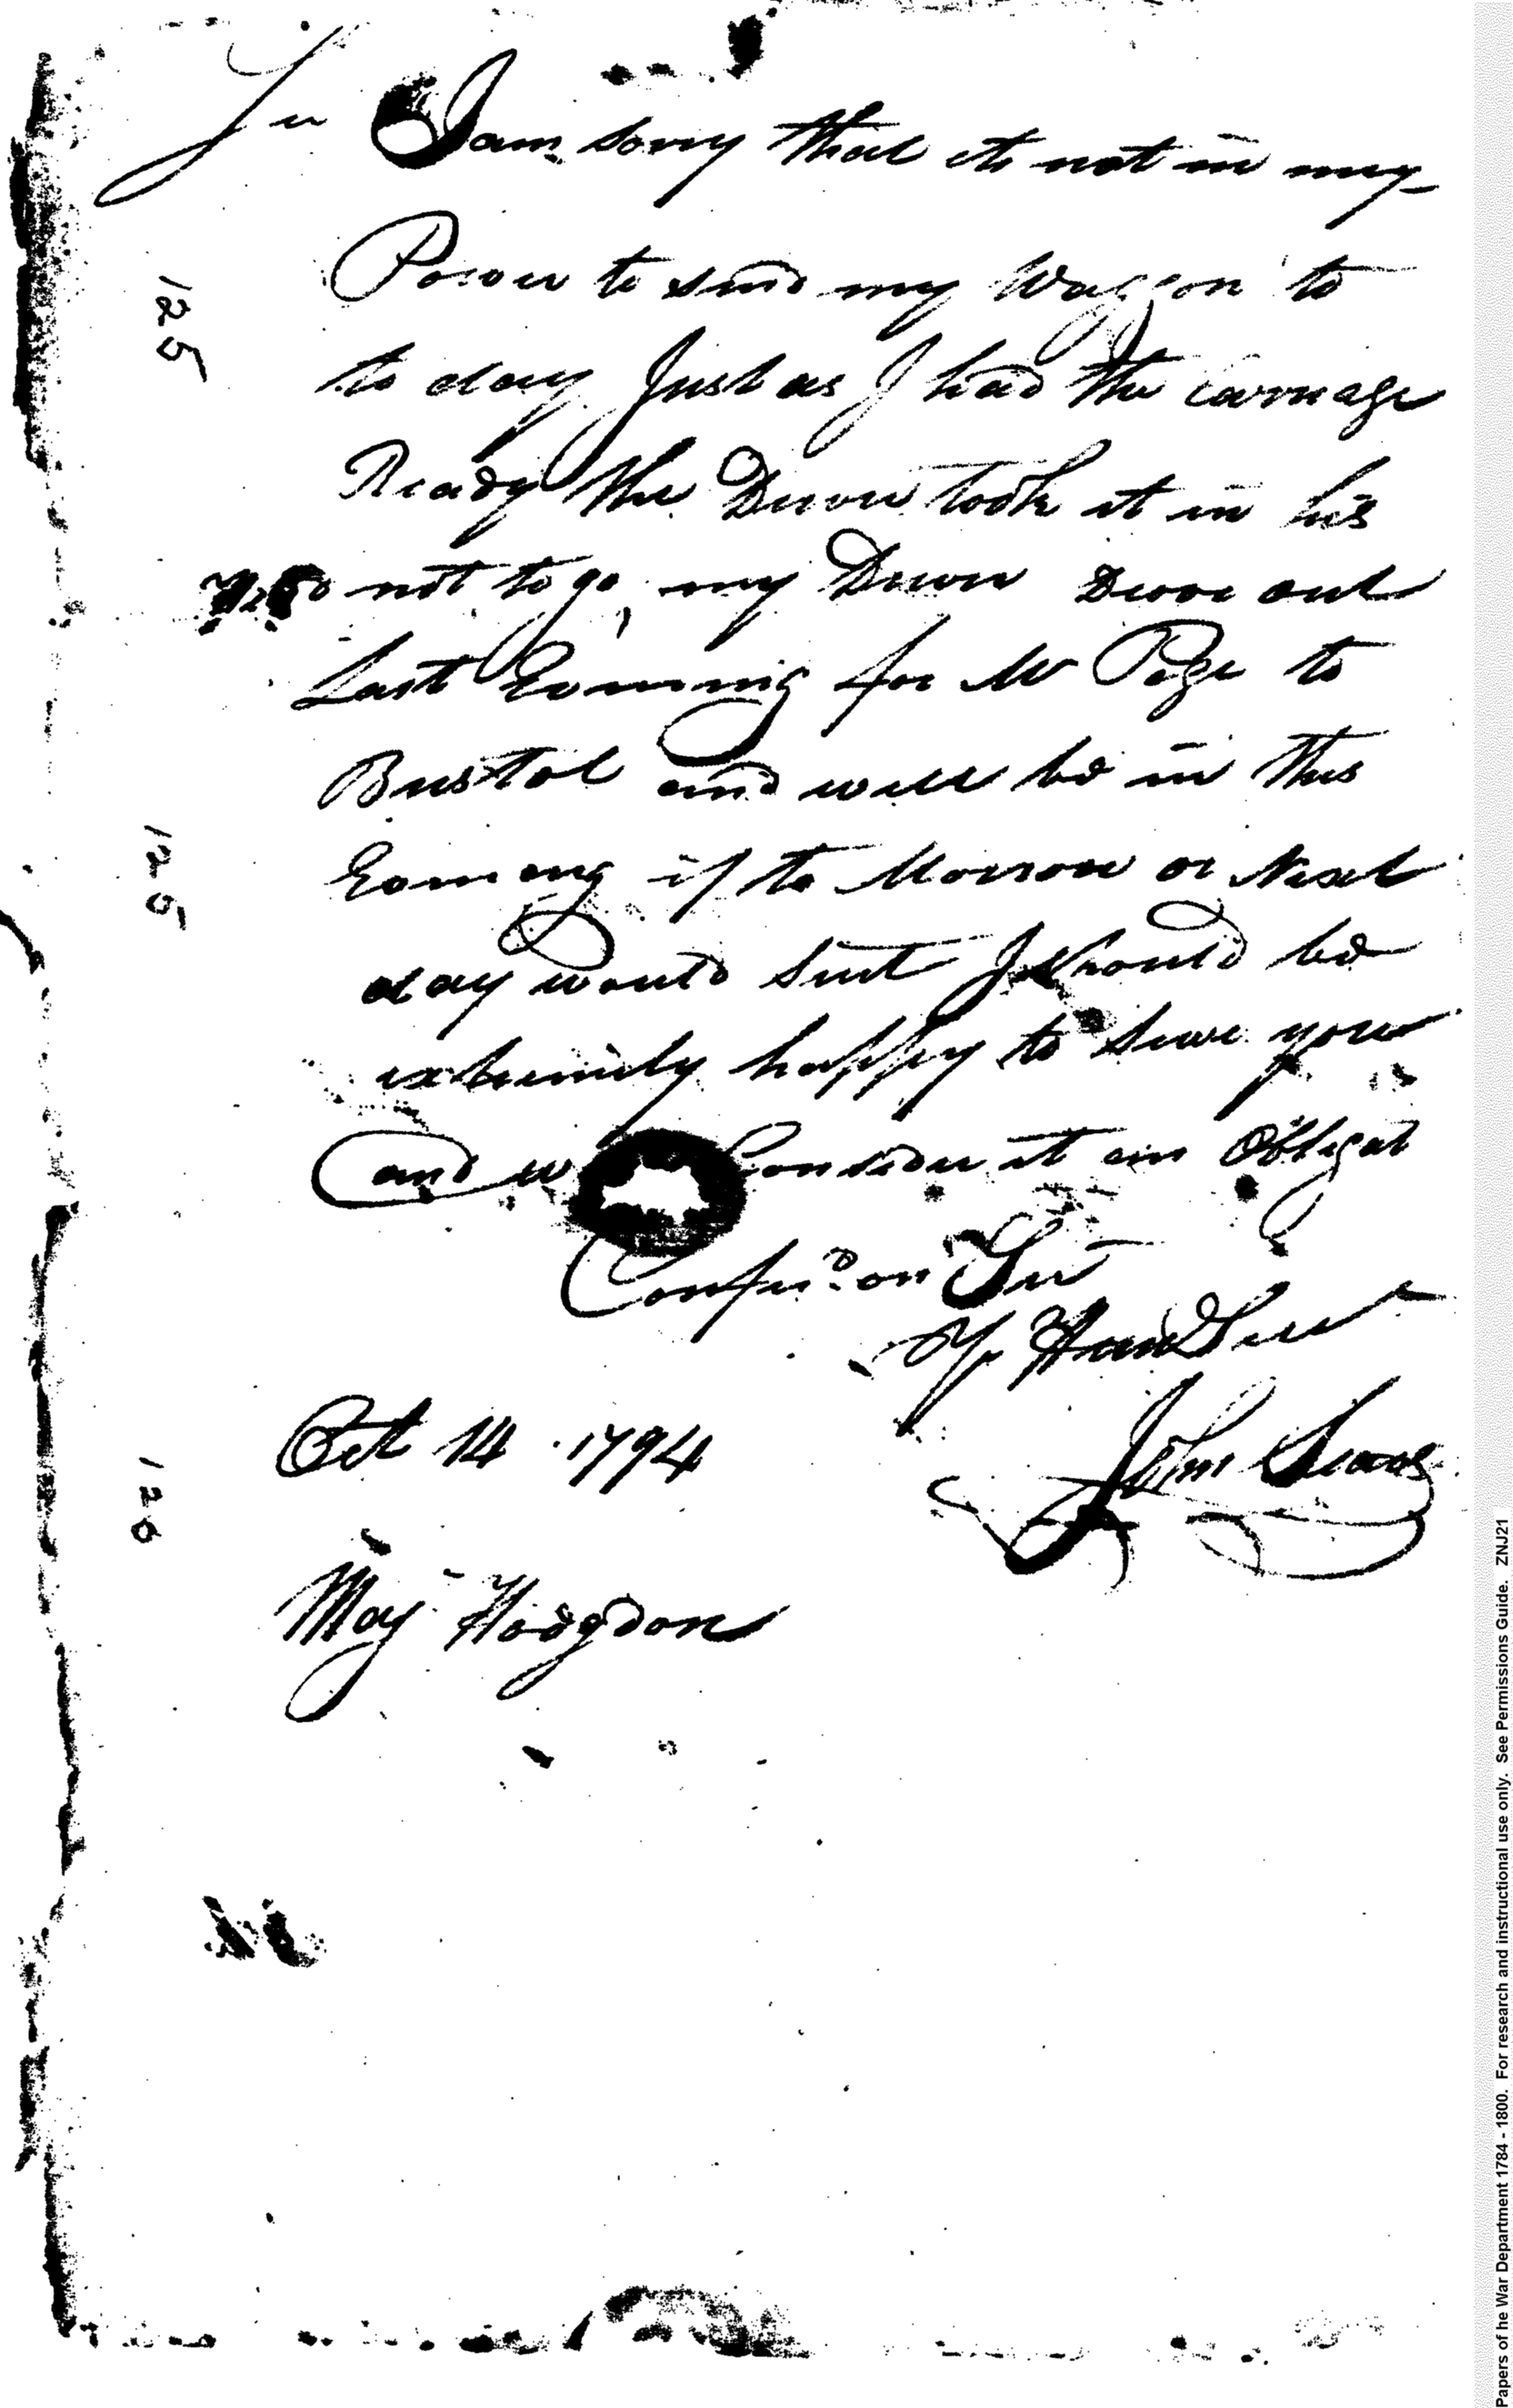 Sir I am sorry that its not in my
Power to send my Waggon to
to day Just as I had the Carriage
Ready the Driver took it in his
not to go, my Driver Drove out
Last Evening for Mr Page to
Bristol and will be in this
Evening if to Morrow or Next
day would Suit I Should be
extremily happy to Serve you
and Consider it an Obligat
Confer.d on Sir
Yr Hum Serv
Oct 14 1794
John
Maj Hodgdon
125
125
126
Papers of he War Department 1784 - 1800. For research and instructional use only. See Permissions Guide. ZNJ21